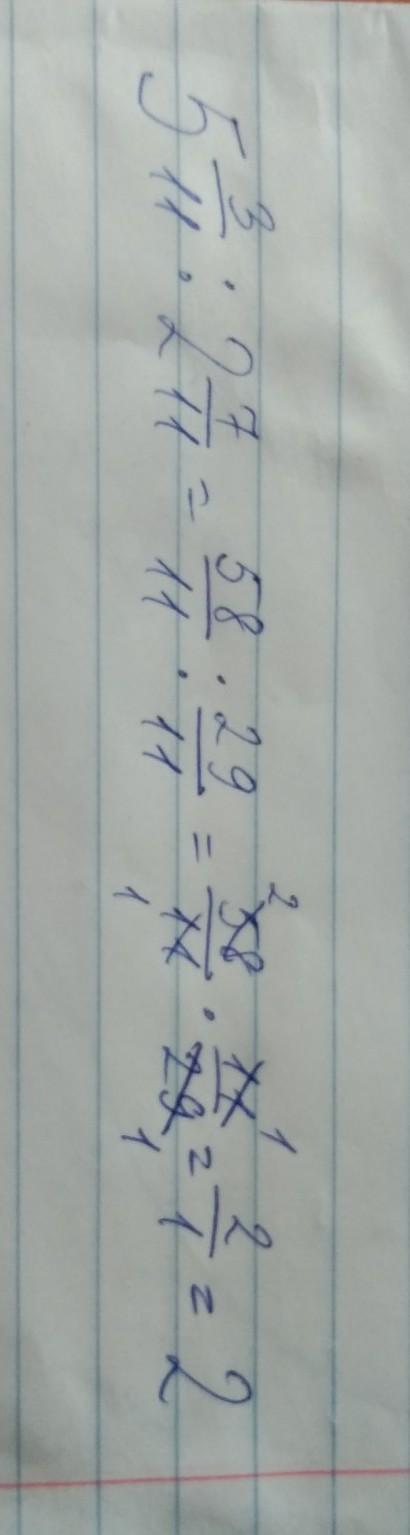 5 3/11 : 2 7/11 = 58/11 : 29/11 = 58/11 · 11/29 = 2/1 = 2